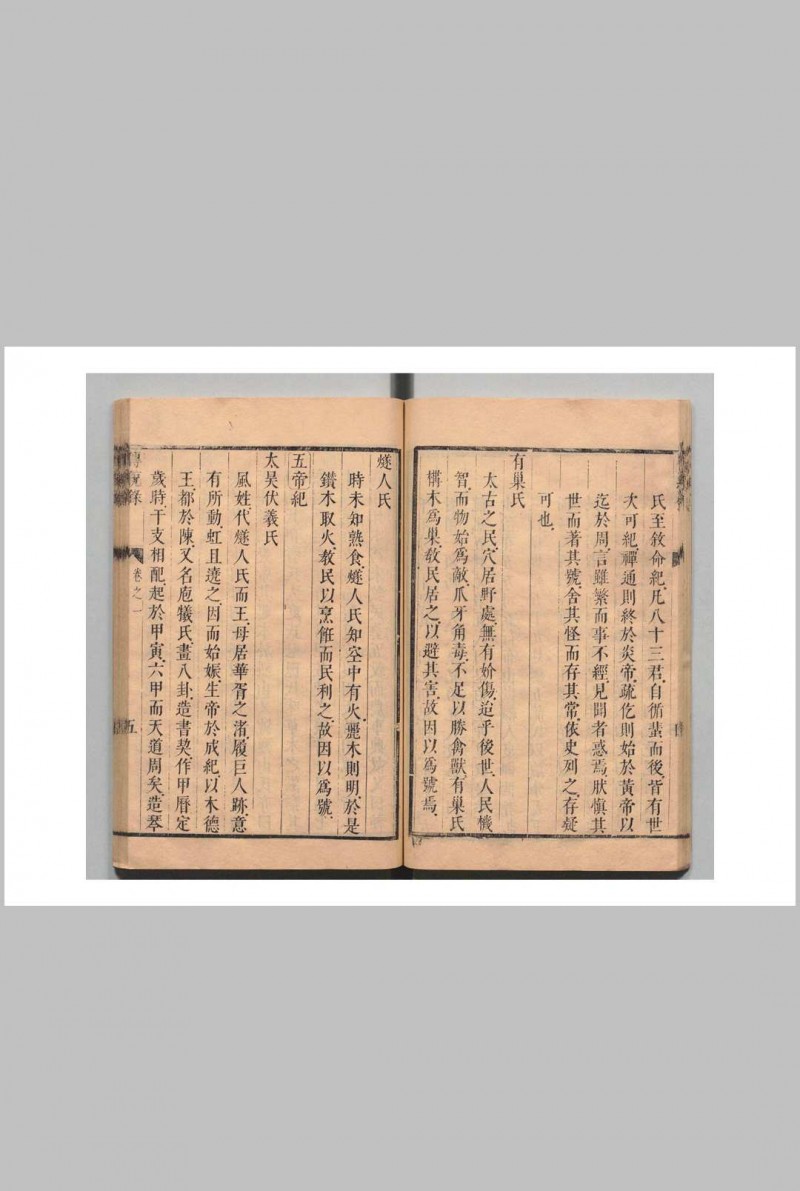 氏至敘命紀凡八十三君自循蜚而後皆有世
次可紀禪通則終於炎帝疏仡則始於黃帝以
迄於周言雖繁而事不經見聞者惑焉狀愼其
世而著其號舍其怪而存其常依史列之存疑
可也
有巢氏
太古之民穴居野處無有妎傷迨乎後世人民機
智而物始爲敵爪牙角毒不足以勝禽獸有巢氏
構木爲巢敎民居之以避其害故因以爲號焉
燧人氏
時未知熟食燧人氏知空中有火麗木則明於是
鑽木取火敎民以烹飪而民利之故因以爲號
五帝紀
太昊伏羲氏
風姓代燧人氏而王母居華胥之渚履巨人跡意
有所動虹且遶之因而始娠生帝於成紀以木德
王都於陳又名庖犧氏畫八卦造書契作甲曆定
歲時干支相配起於甲寅六甲而天道周矣造琴
卷之一
五